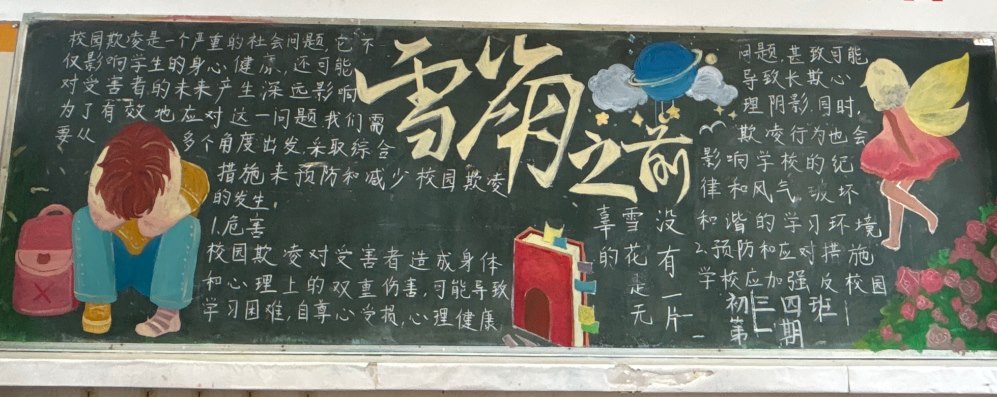 校园欺凌是一个严重的社会问题,它不
仅影响学生的身心健康,还可能
对受害者的未来产生深远影响
为了有效地应对这一问题我们需
要从 多个角度出发.采取综合
措施来预防和减少校园欺凌
的发生
1.危害
校园欺凌对受害者造成身体
和心理上的双重伤害,可能导致
学习困难,自尊心受损.心理健康
雪崩之前
没有一片
雪花是无
辜的
问题,甚致可能
导致长欺心
理阴影.同时
欺凌行为也会
影响学校的纪
律和风气 破坏
和谐的学习环境
2.预防和应对措施
学校应加强反校园
初三四班
第 期